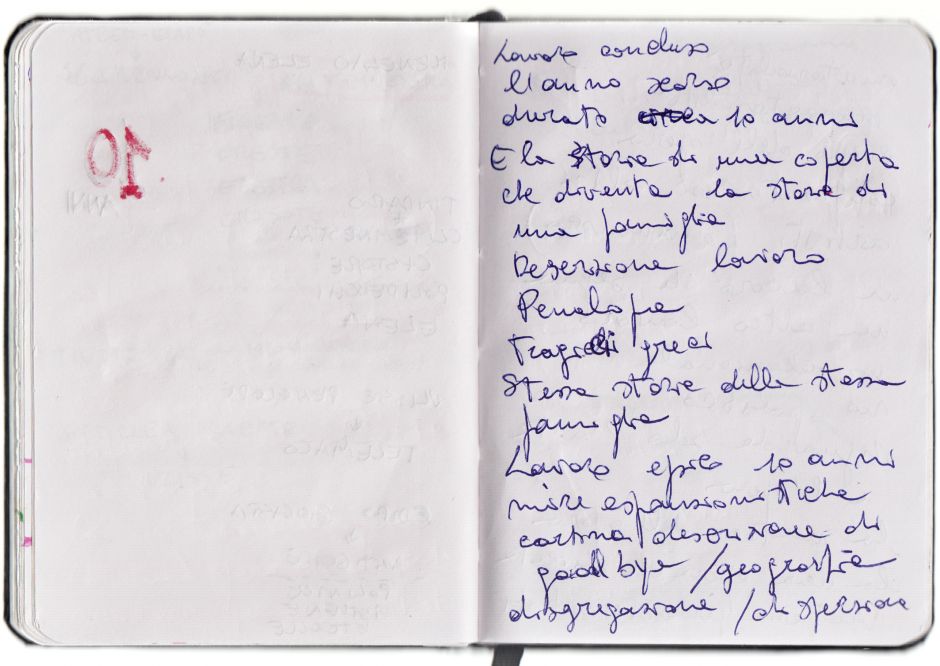 10
Lavoro concluso
l'anno scorso
durato circa 10 anni
E la storia di una coperta
che diventa la storia di
una famiglia
Descrizione lavoro
Penelope
tragici greci
Stessa storia della stessa
famiglia
Lavoro epico 10 anni
mire espansionistiche
cartina/descrizione di
goodbye /geografia
disgregazione /dispersione